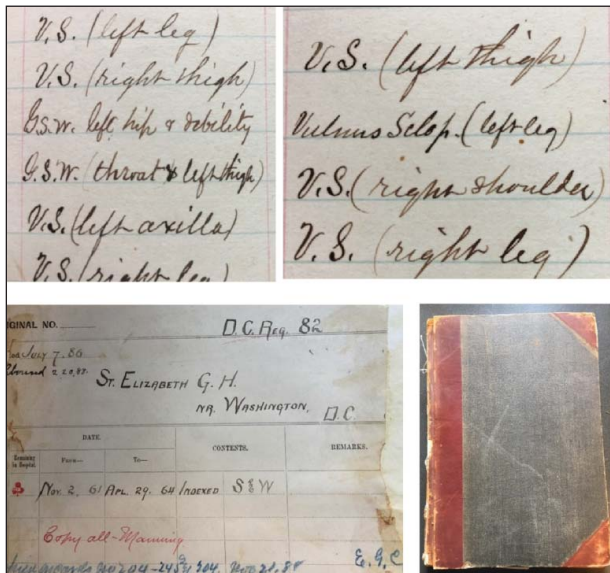 V.S. (left leg)
V.S. (right thigh)
G.S.W. left hip & debility
G.S.W. (throat & left thigh)
V.S. (left axilla)
V.S. (right leg)
V.S. (left thigh)
Vulnus Sclop. (left leg)
V.S. (right shoulder)
V.S. (right leg)
IGINAL NO.
D.C. Reg. 82
July 7. 86
bound 2 20, 87.
St. Elizabeth G. H.
nr. Washington, D.C.
DATE.
CONTENTS.
REMARKS.
From—
To—
Nov 2, 61 Apl. 29. 64 Indexed S & W
Copy all-Manning
Nov 21, 88
E.G.C